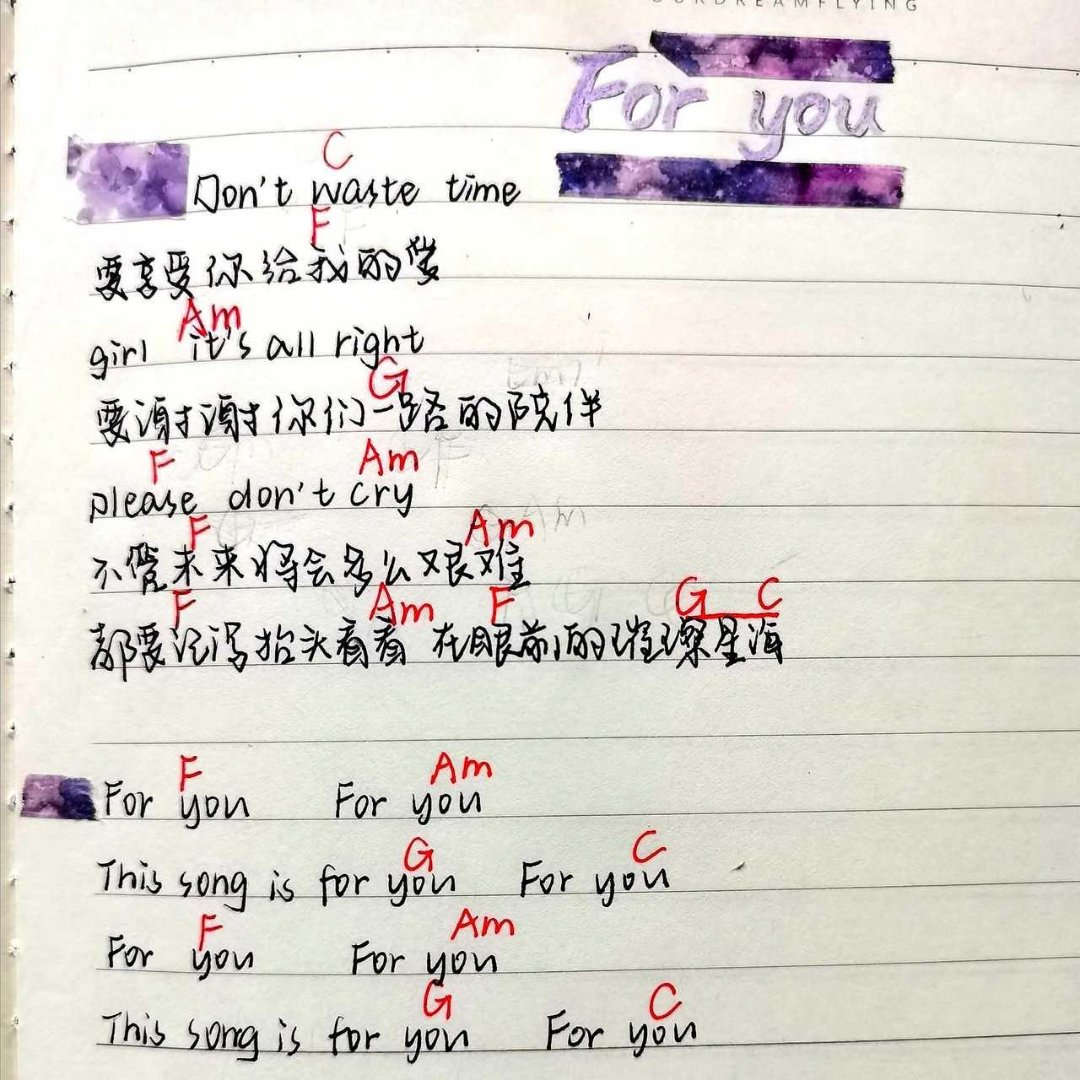 OURDREAMFLYING
For you
C
Don't waste time
F
要享受你给我的爱
Am
girl it's all right
G
要谢谢你们一路的陪伴
F Am
please don't cry
F Am
不管未来将会多么艰难
F Am F G C
都要记得抬头看看 在眼前的璀璨星海
F Am
For you For you
G C
This song is for you For you
F Am
For you For you
G C
This song is for you For you